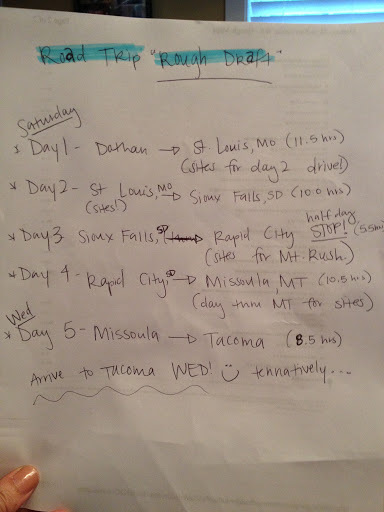 Road Trip "Rough Draft"
Saturday
* Day 1 - Dothan → St. Louis, MO (11.5 hrs)
(sites for day 2 drive!)
* Day 2 - St Louis, MO → Sioux Falls, SD (10.0 hrs)
(sites!)
half day
* Day 3 Sioux Falls, SD → Rapid City STOP! (5.5 hrs)
(sites for Mt. Rush.)
* Day 4 - Rapid City, SD → Missoula, MT (10.5 hrs)
(day thru MT for sites)
Wed
* Day 5 - Missoula → Tacoma (8.5 hrs)
Arrive to Tacoma WED! tennatively...